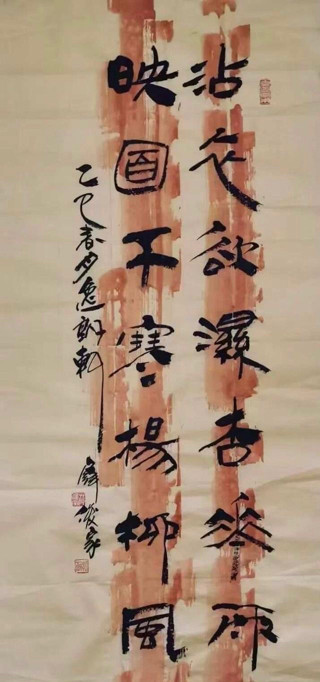 沾衣欲濕杏花雨
映面不寒楊柳風
乙巳春月逸軒